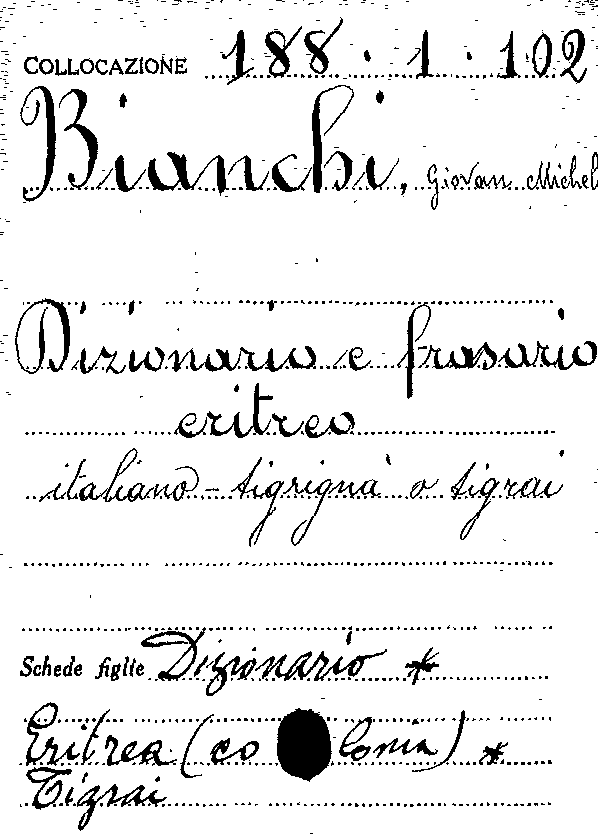 COLLOCAZIONE 188.1.102
Bianchi, Giovan Michel
Dizionario e frasario
eritreo
italiano-tigrignà o tigrai
Schede figlie Dizionario *
Eritrea (colonia) *
Tigrai